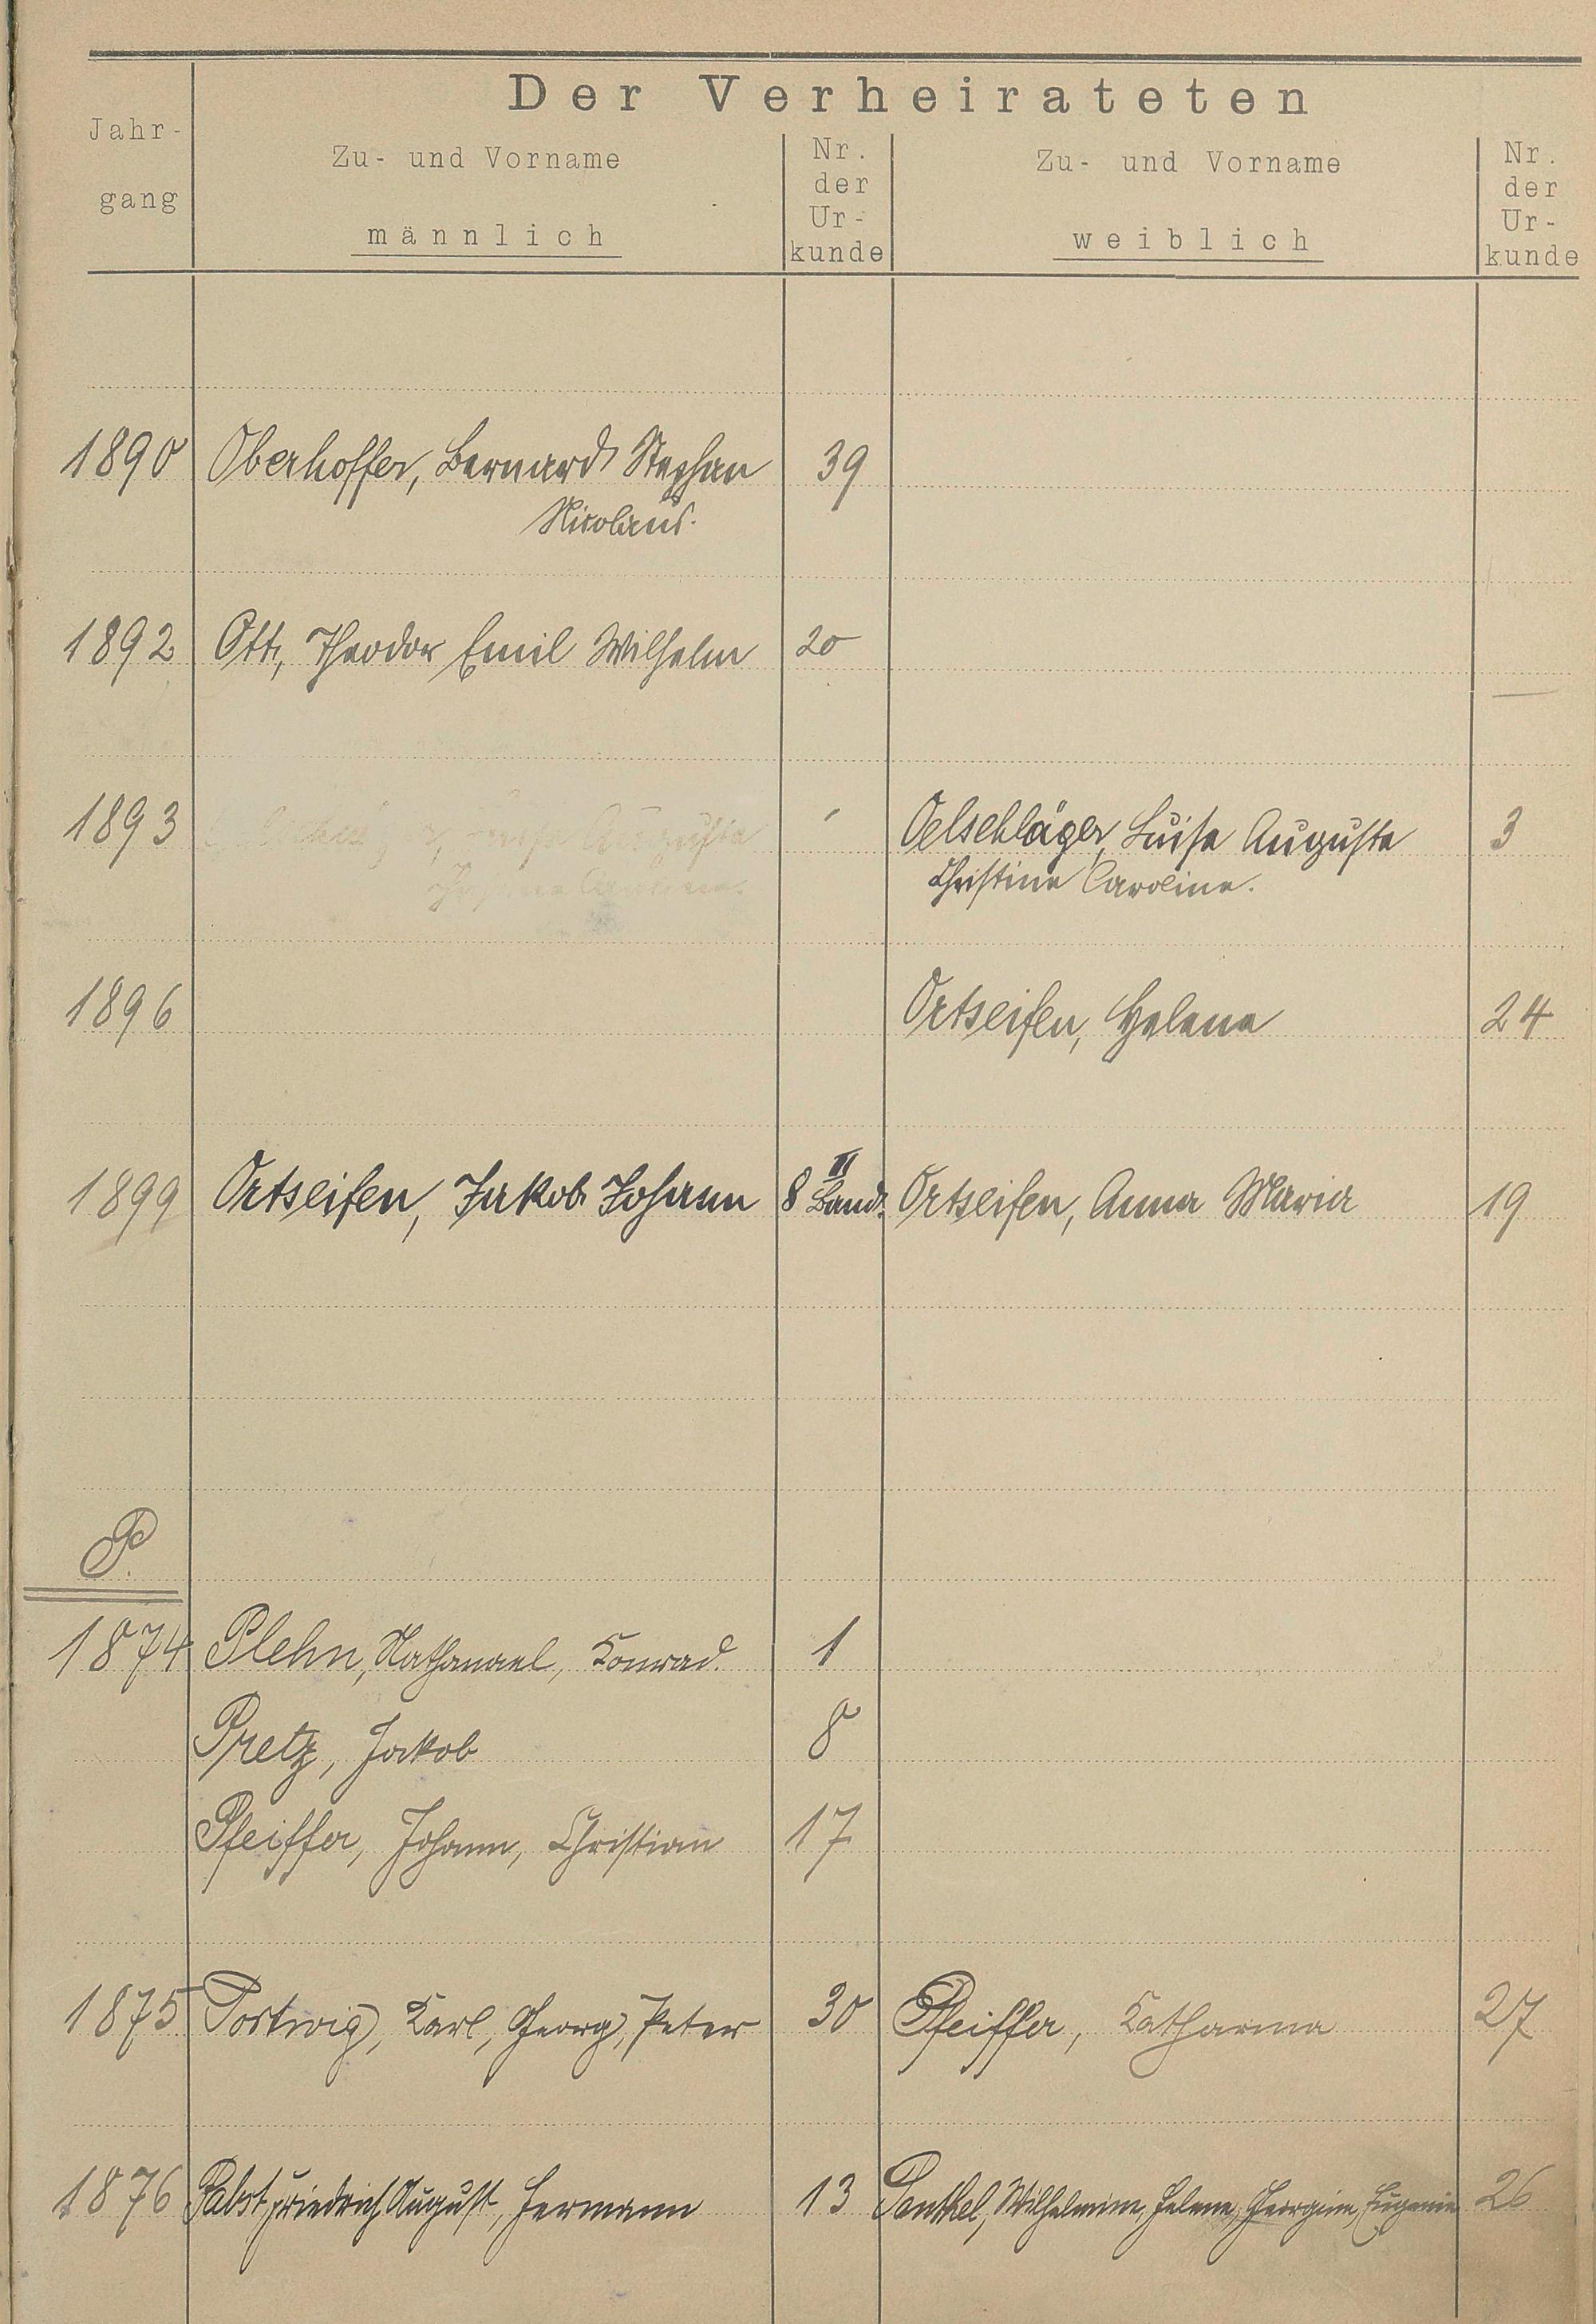 Der Verheirateten
Jahr-
gang
Zu- und Vorname
männlich
Nr.
der
Ur-
kunde
Zu- und Vorname
weiblich
Nr.
der
Ur-
kunde
1890 Oberhoffer, Bernard Stephan 39
Nicolaus.
1892 Ott, Theodor Emil Wilhelm 20
1893 Oelschläger, Luise Auguste 3
Christine Caroline.
1896 Ortseifen, Helena 24
1899 Ortseifen, Jakob Johann 8 II Band. Ortseifen, Anna Maria 19
P.
1874 Plehn, Nathanael, Konrad. 1
Pretz, Jakob 8
Pfeiffer, Johann, Christian 17
1875 Portwig, Karl, Georg, Peter 30 Pfeiffer, Katharina 27
1876 Pabst, Friedrich, August, Hermann 13 Panthel, Wilhelmine, Helene, Georgine, Eugenie 26